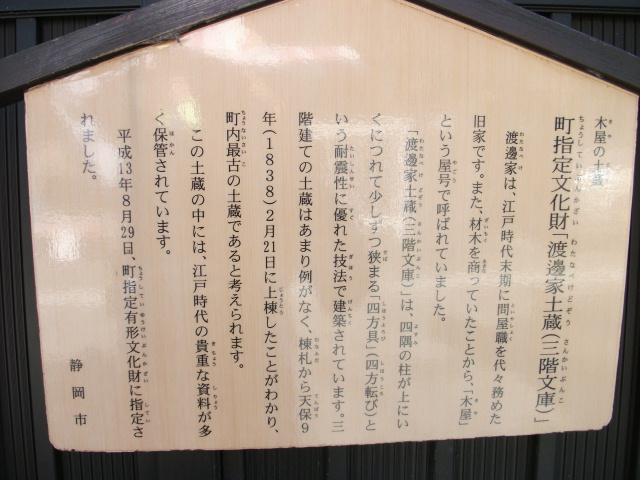 木屋の土蔵
町指定文化財「渡邊家土蔵(三階文庫)」
渡邊家は、江戸時代末期に問屋職を代々務めた
旧家です。また、材木を商っていたことから、「木屋」
という屋号で呼ばれていました。
「渡邊家土蔵(三階文庫)」は、四隅の柱が上にい
くにつれて少しずつ狭まる「四方具」(四方転び)と
いう耐震性に優れた技法で建築されています。三
階建ての土蔵はあまり例がなく、棟札から天保9
年(1838)2月21日に上棟したことがわかり、
町内最古の土蔵であると考えられます。
この土蔵の中には、江戸時代の貴重な資料が多
く保管されています。
平成13年8月29日、町指定有形文化財に指定さ
れました。
静岡市